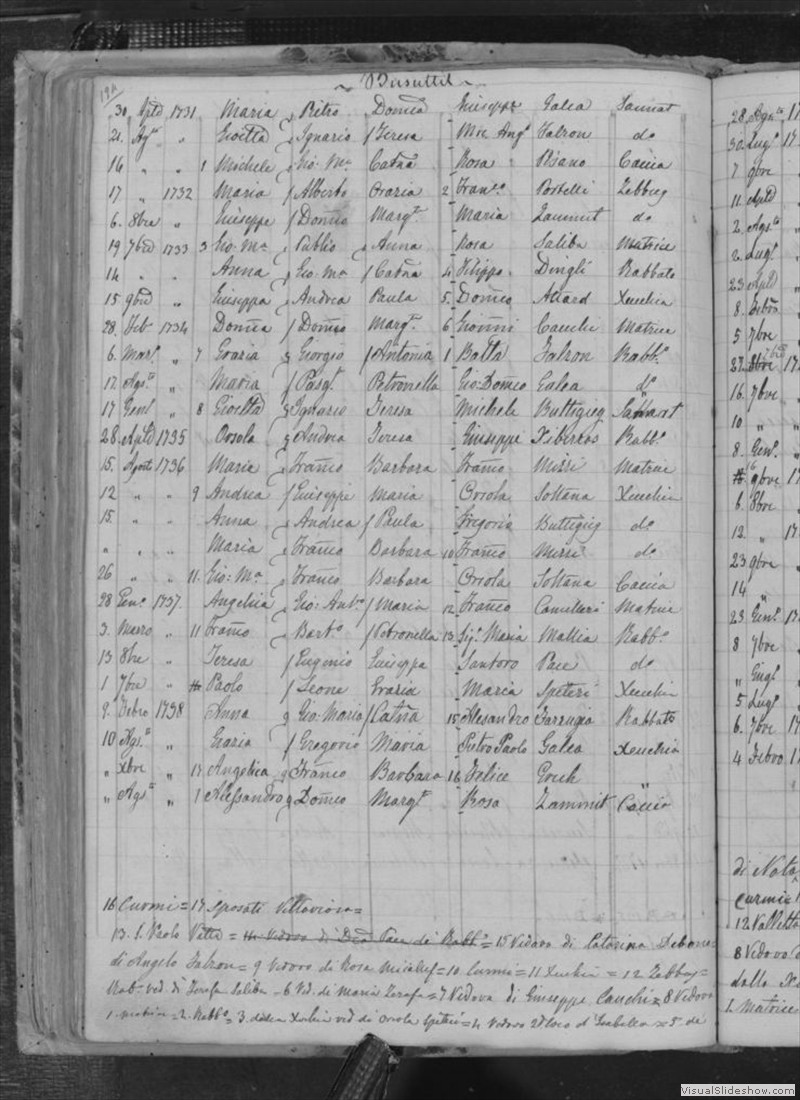 191
~ Busuttil ~
30 April 1731 Maria Pietro Domca Giuseppe Galea Sannat
21 Agto " Gioetta g Ignazio f Teresa Mic Ango Falzon do
16 " " 1 Michele g Gio: Ma Catna Rosa Pisano Caccia
17 " 1732 Maria f Alberto Grazia 2 Franco Portelli Zebbug
6 8bre " Giuseppe f Domco Margta Maria Zammit do
19 7bre 1733 3 Gio: Ma g Publio g Anna Rosa Saliba Matrice
14 " " Anna g Gio: Ma f Catna 4 Filippo Dingli Rabbato
15 9bre " Giuseppa g Andrea Paula 5 Domco Attard Xeuchia
28 Feb 1734 Domca f Domco Margta 6 Gionni Cauchi Matrice
6 Marzo " 7 Grazia g Giorgio f Antonia 1 Batta Falzon Rabbo
17 Agsto " Maria f Pasqle Petronella Gio: Domco Galea do
17 Genl " 8 Gioetta g Ignazio Teresa Michele Buttigieg Sannat
28 April 1735 Orsola g Andrea Teresa Giuseppe Xiberras Rabbo
15 Agosto 1736 Maria g Franco Barbara Franco Mizzi Matrice
12 " " 9 Andrea f Giuseppe Maria Orsola Soltana Xeuchia
15 " Anna g Andrea f Paula Gregorio Buttigieg do
" " " Maria g Franco Barbara 10 Franco Mizzi do
26 " " 11 Gio: Ma g Franco Barbara Orsola Soltana Caccia
28 Geno 1737 Angelica g Gio: Anto f Maria 12 Franco Camilleri Matrice
3 Marzo " 11 Franco g Barto f Petronella 13 Maria Mallia Rabbo
13 8bre " Teresa f Eugenio Giuseppa Santoro Pace do
1 7bre " Paolo f Leone Grazia Maria Spiteri Xeuchia
2 Febro 1738 Anna g Gio: Maria f Catna 15 Alesandro Farrugia Rabbato
10 Agsto " Grazia f Gregorio Maria Pietro Paolo Galea Xeuchia
" Xbre 17 Angelica g Franco Barbara 16 Felice Grech "
" Agsto " 1 Alessandro g Domco Margta Rosa Zammit Caccia
16 Curmi = 17 Sposati Vittoriosa =
13. S. Paolo Vitta = 14 Vedovo di Pace di Rabbo = 15 Vedovo di Catarina Debono
di Angelo Falzon = 9 Vedovo di Rosa Micallef = 10 Curmi = 11 Xeuchia = 12 Zebbug =
Rabo ved. di Josefa Saliba = 6 Ved. di Maria Josefa = 7 Vedova di Giuseppe Cauchi = 8 Vedova
1. Matrice = 2. Rabbo = 3. Xeuchia ved di Orsola Spiteri = 4 Vedovo = 5 di
28 Agsto 17
30 Lugo 17
7 9bre
11 April
2 Agsto
2 Lugo
23 April
8 Febro
5 7bre
27 8bre 17
16 7bre
10 "
8 Geno
16 9bre 17
6 8bre
12 " 17
23 9bre
14 "
23 Geno 17
8 7bre
" Giugo
5 Lugo
6 7bre 17
4 Febro 17
di Nata
Curmi = 1
12 Valletta
8 Vedovo d
dalla
1. Matrice
VisualSlideshow.com